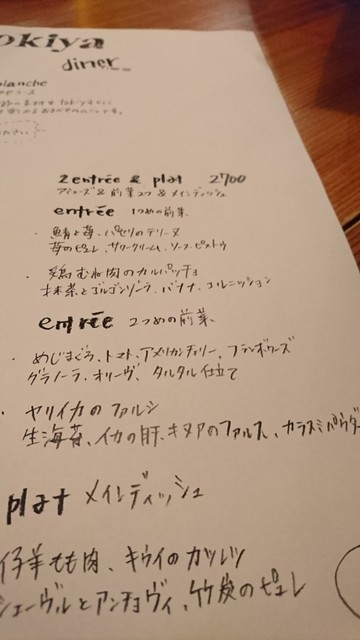 okiya
diner
planche
2 entrée & plat 2700
アミューズ & 前菜2つ & メインディッシュ
entrée 1つめの前菜
・鮪と苺、パセリのテリーヌ
苺のピュレ、サワークリーム、ソースピストゥ
・鶏むね肉のカルパッチョ
ゴルゴンゾーラ、バナナ、コルニッション
entrée 2つめの前菜
・めじまぐろ、トマト、アメリカンチェリー、フランボワーズ
グラノーラ、オリーヴ、タルタル仕立て
・ヤリイカのファルシ
生海苔、イカの肝、キヌアのファルス、カラスミパウダー
plat メインディッシュ
仔羊もも肉、キウイのカツレツ
シェーヴルとアンチョヴィ、竹炭のピュレ